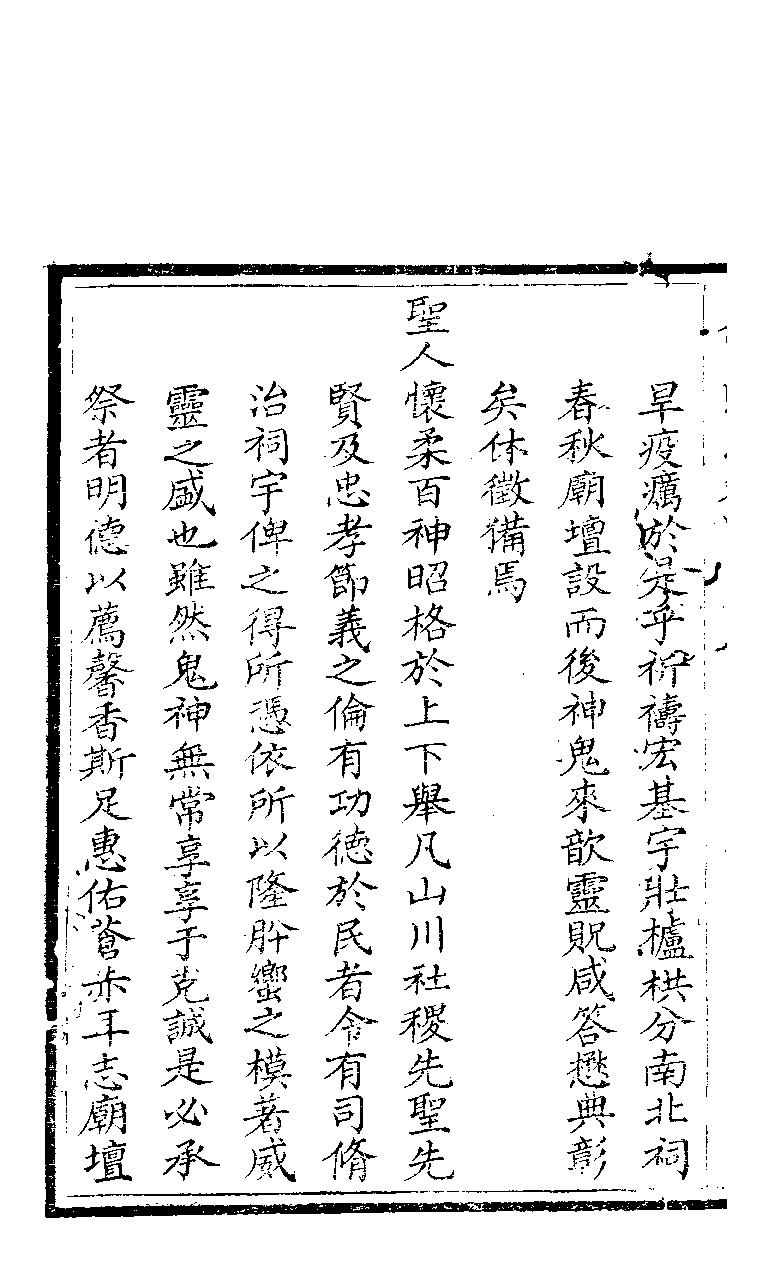 旱疫癘於是乎祈禱宏基宇壯櫨栱分南北祠
春秋廟壇設而後神鬼來歆靈貺咸答懋典彰
矣休徵備焉
聖人懷柔百神昭格於上下舉凡山川社稷先聖先
賢及忠孝節義之倫有功德於民者令有司脩
治祠宇俾之得所憑依所以隆肸蠁之模著威
靈之盛也雖然鬼神無常享享于克誠是必承
祭者明德以薦馨香斯足惠佑蒼赤耳志廟壇